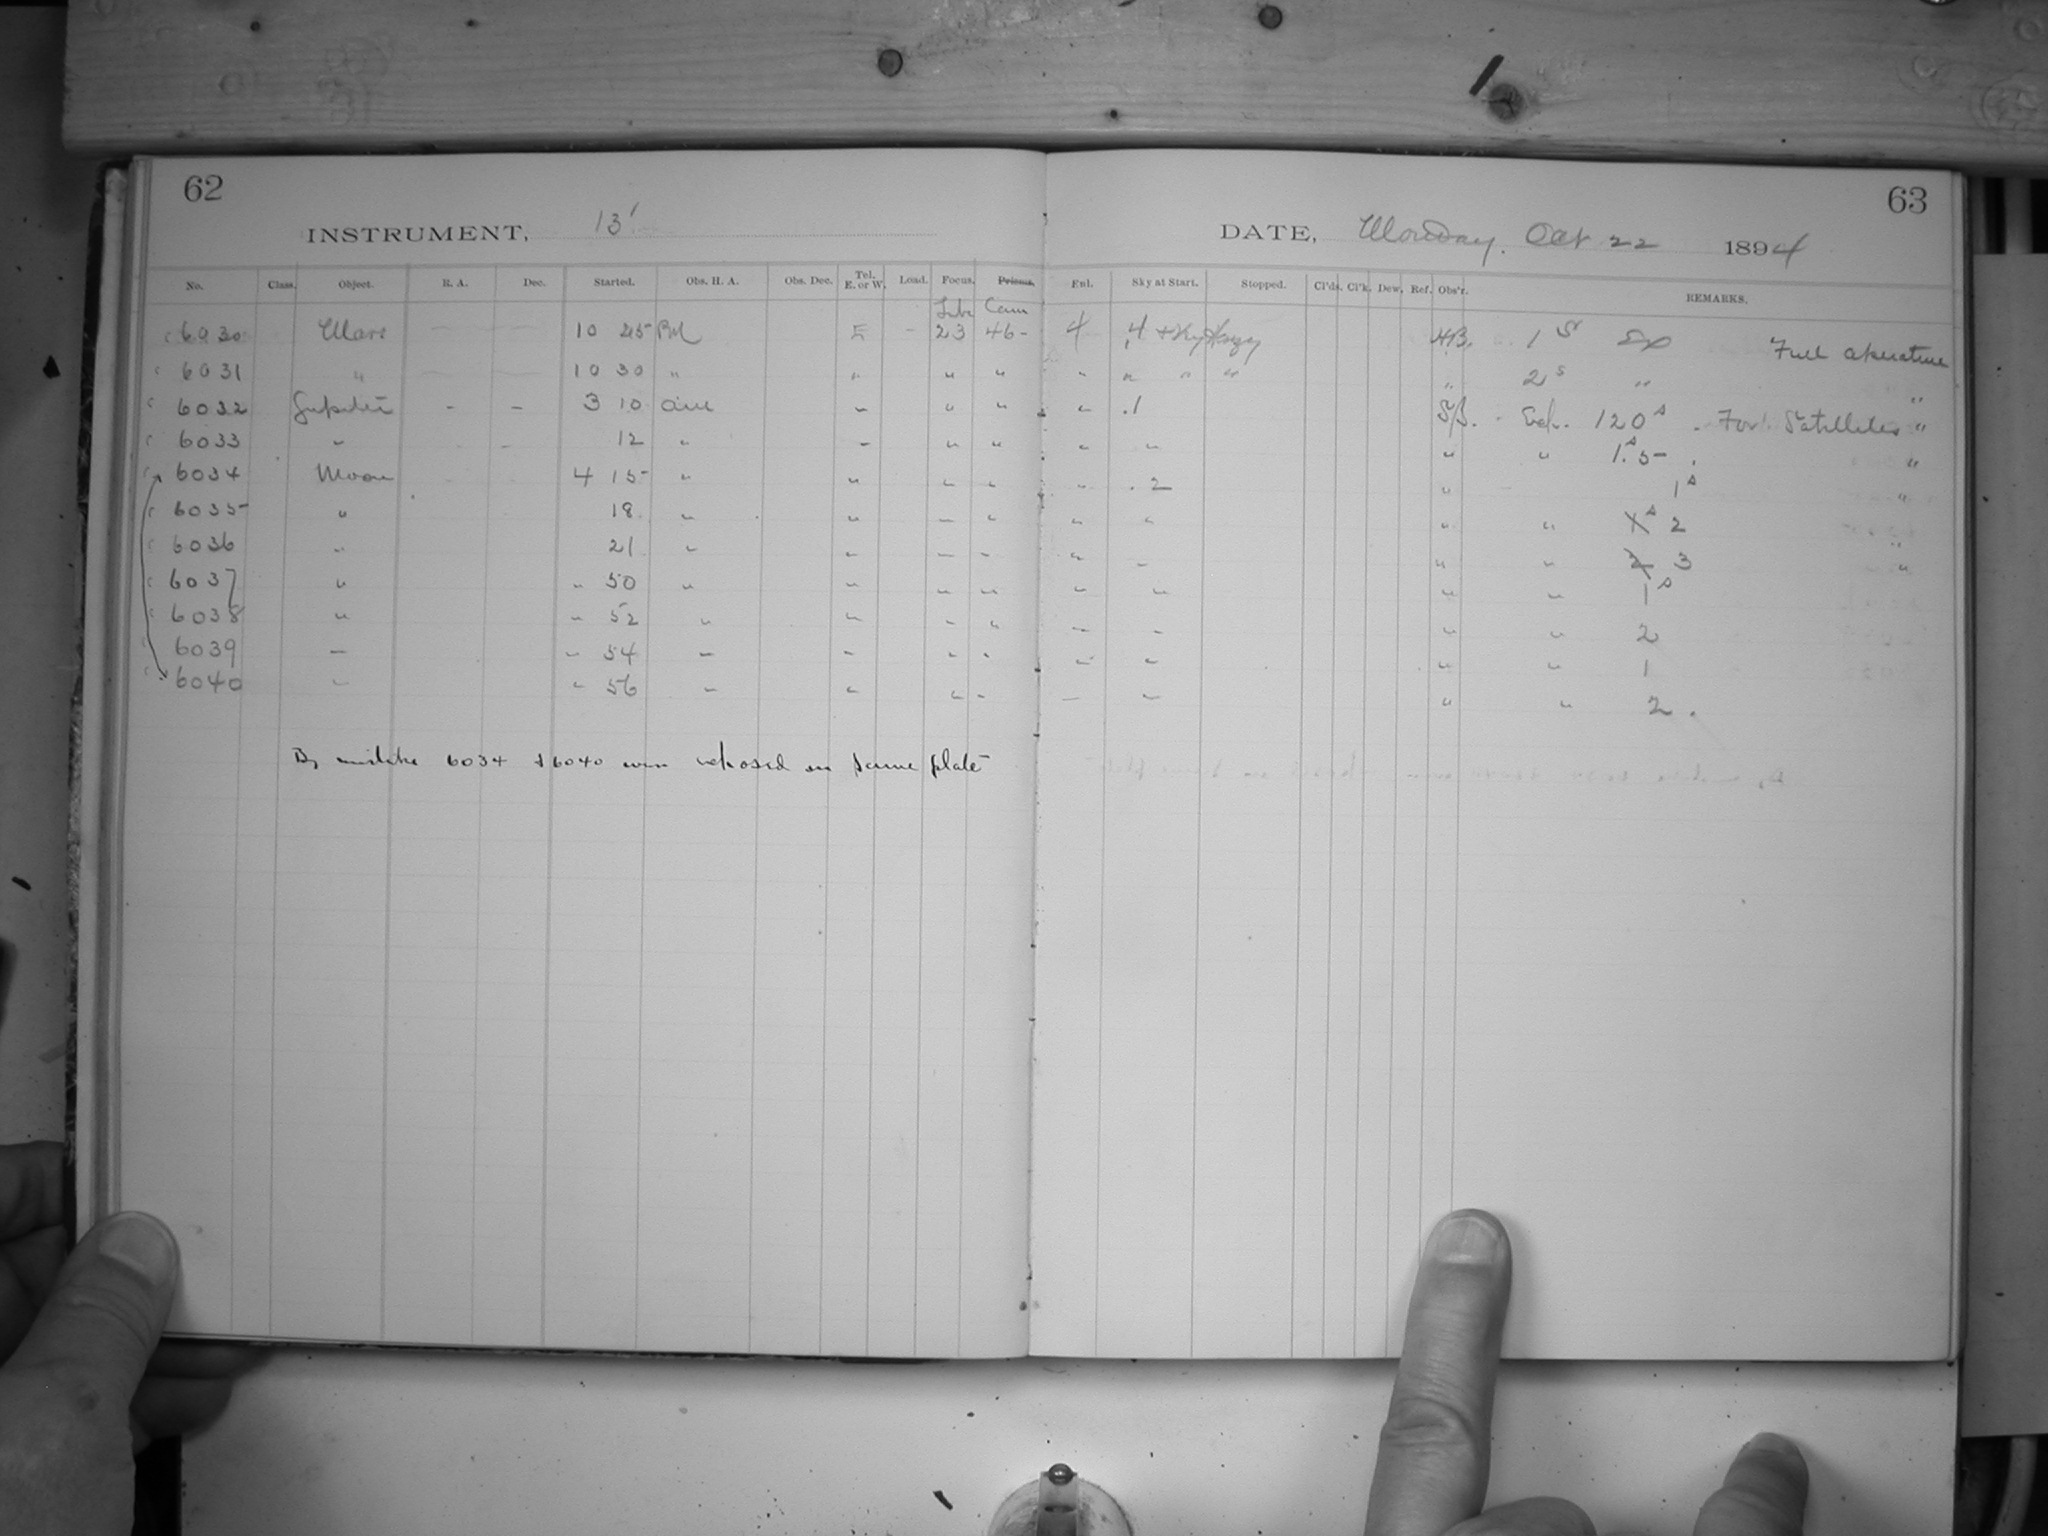 62
63
INSTRUMENT, 13'
DATE, Monday. Oct 22 1894
No. Class. Object. R. A. Dec. Started. Obs. H. A. Obs. Dec. Tel. E. or W. Load. Focus. Prisms. Enl. Sky at Start. Stopped. Cl'ds. Cl'k. Dew. Ref. Obs'r. REMARKS.
Tube Cam
6030 Mars — — 10 25 PM E - 23 46- 4 4 + sky hazy HB. 1 Exp Full aperture
6031 " — — 10 30 " " " " " " " " " 2s " "
6032 Jupiter - - 3 10 am " " " " .1 SB. Exp. 120s. For Satellites "
6033 " - - 12 " " " " " " " " 1.s5- "
6034 Moon 4 15- " " " " " .2 " 1s "
6035- " 18 " " " " " " " " 1s 2
6036 " 21 " " " " " " " " 2 3 "
6037 " " 50 " " " " " " " " 1s
6038 " " 52 " " " " " " " " 2
6039 " " 54 " " " " " " " " 1
6040 " " 56 " " " " " " " " 2.
By mistake 6034 & 6040 were exposed on same plate